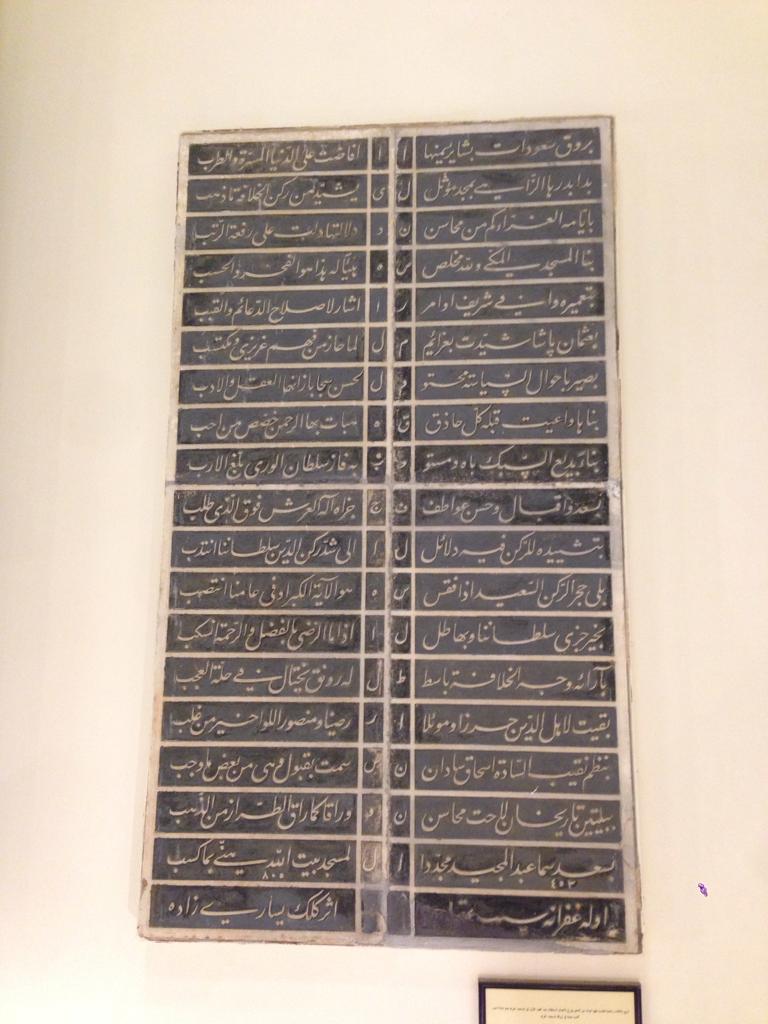 بروق سعودات بشاير يمنها ا ا افاضت على الدنيا المسرة والطرب
بدا بدرها الزاهي بمجد موثل ل ى يشيد من ركن الخلافة ما ذهب
بايامه الغراء كم من محاسن ن د دلالتها دلت على رفعة الرتب
بنا المسجد المكي ولله مخلص س ه له هذا هو الفخر والحسب
بتعميره وافى شريف اوامر ر ا اشار لاصلاح الدعائم والقبب
بعثمان پاشا شيدت بعزائم م ل لما حاز من فهم غريزي ومكتسب
بصير باحوال السياسة محتو و ل لحسن سجايا زانها العقل والادب
بناها واعيت قبله كل حاذق ق ه هبات بها الرحمن خصص من احب
بناء بديع السبك باه ومستو و ب به فاز سلطان الورى بلغ الارب
بسعد واقبال وحسن عواطف ف ج جزاه اله العرش فوق الذي طلب
بتشييده للركن فيه دلائل ل ا الى شد ركن الدين سلطاننا انتدب
بلى حجر الركن السعيد اذا فقس س ه هو الآية الكبرا وفي عامنا انتصب
بخير جزى سلطاننا وبهاطل ل ا اذا ما الرضى بالفضل والرحمة انسكب
بآرائه وجه الخلافة باسط ط ل له رونق يختال في حلة العجب
بقيت لاهل الدين حرزا وموئلا ا ر رصينا ومنصور اللوا خير من غلب
بنظم نقيب السادة اسحاق سادان ن س سمت بقبول وهي من بعض ما وجب
ببيتين تاريخان لاحت محاسن ن و وراقا كما راق الطراز من الذهب
بسعد سما عبد المجيد مجددا ا ل لمسجد بيت الله يهنى بما كسب
٤٠٢ ٨٠٠
اوله غفرانه اثر كلك يساري زاده